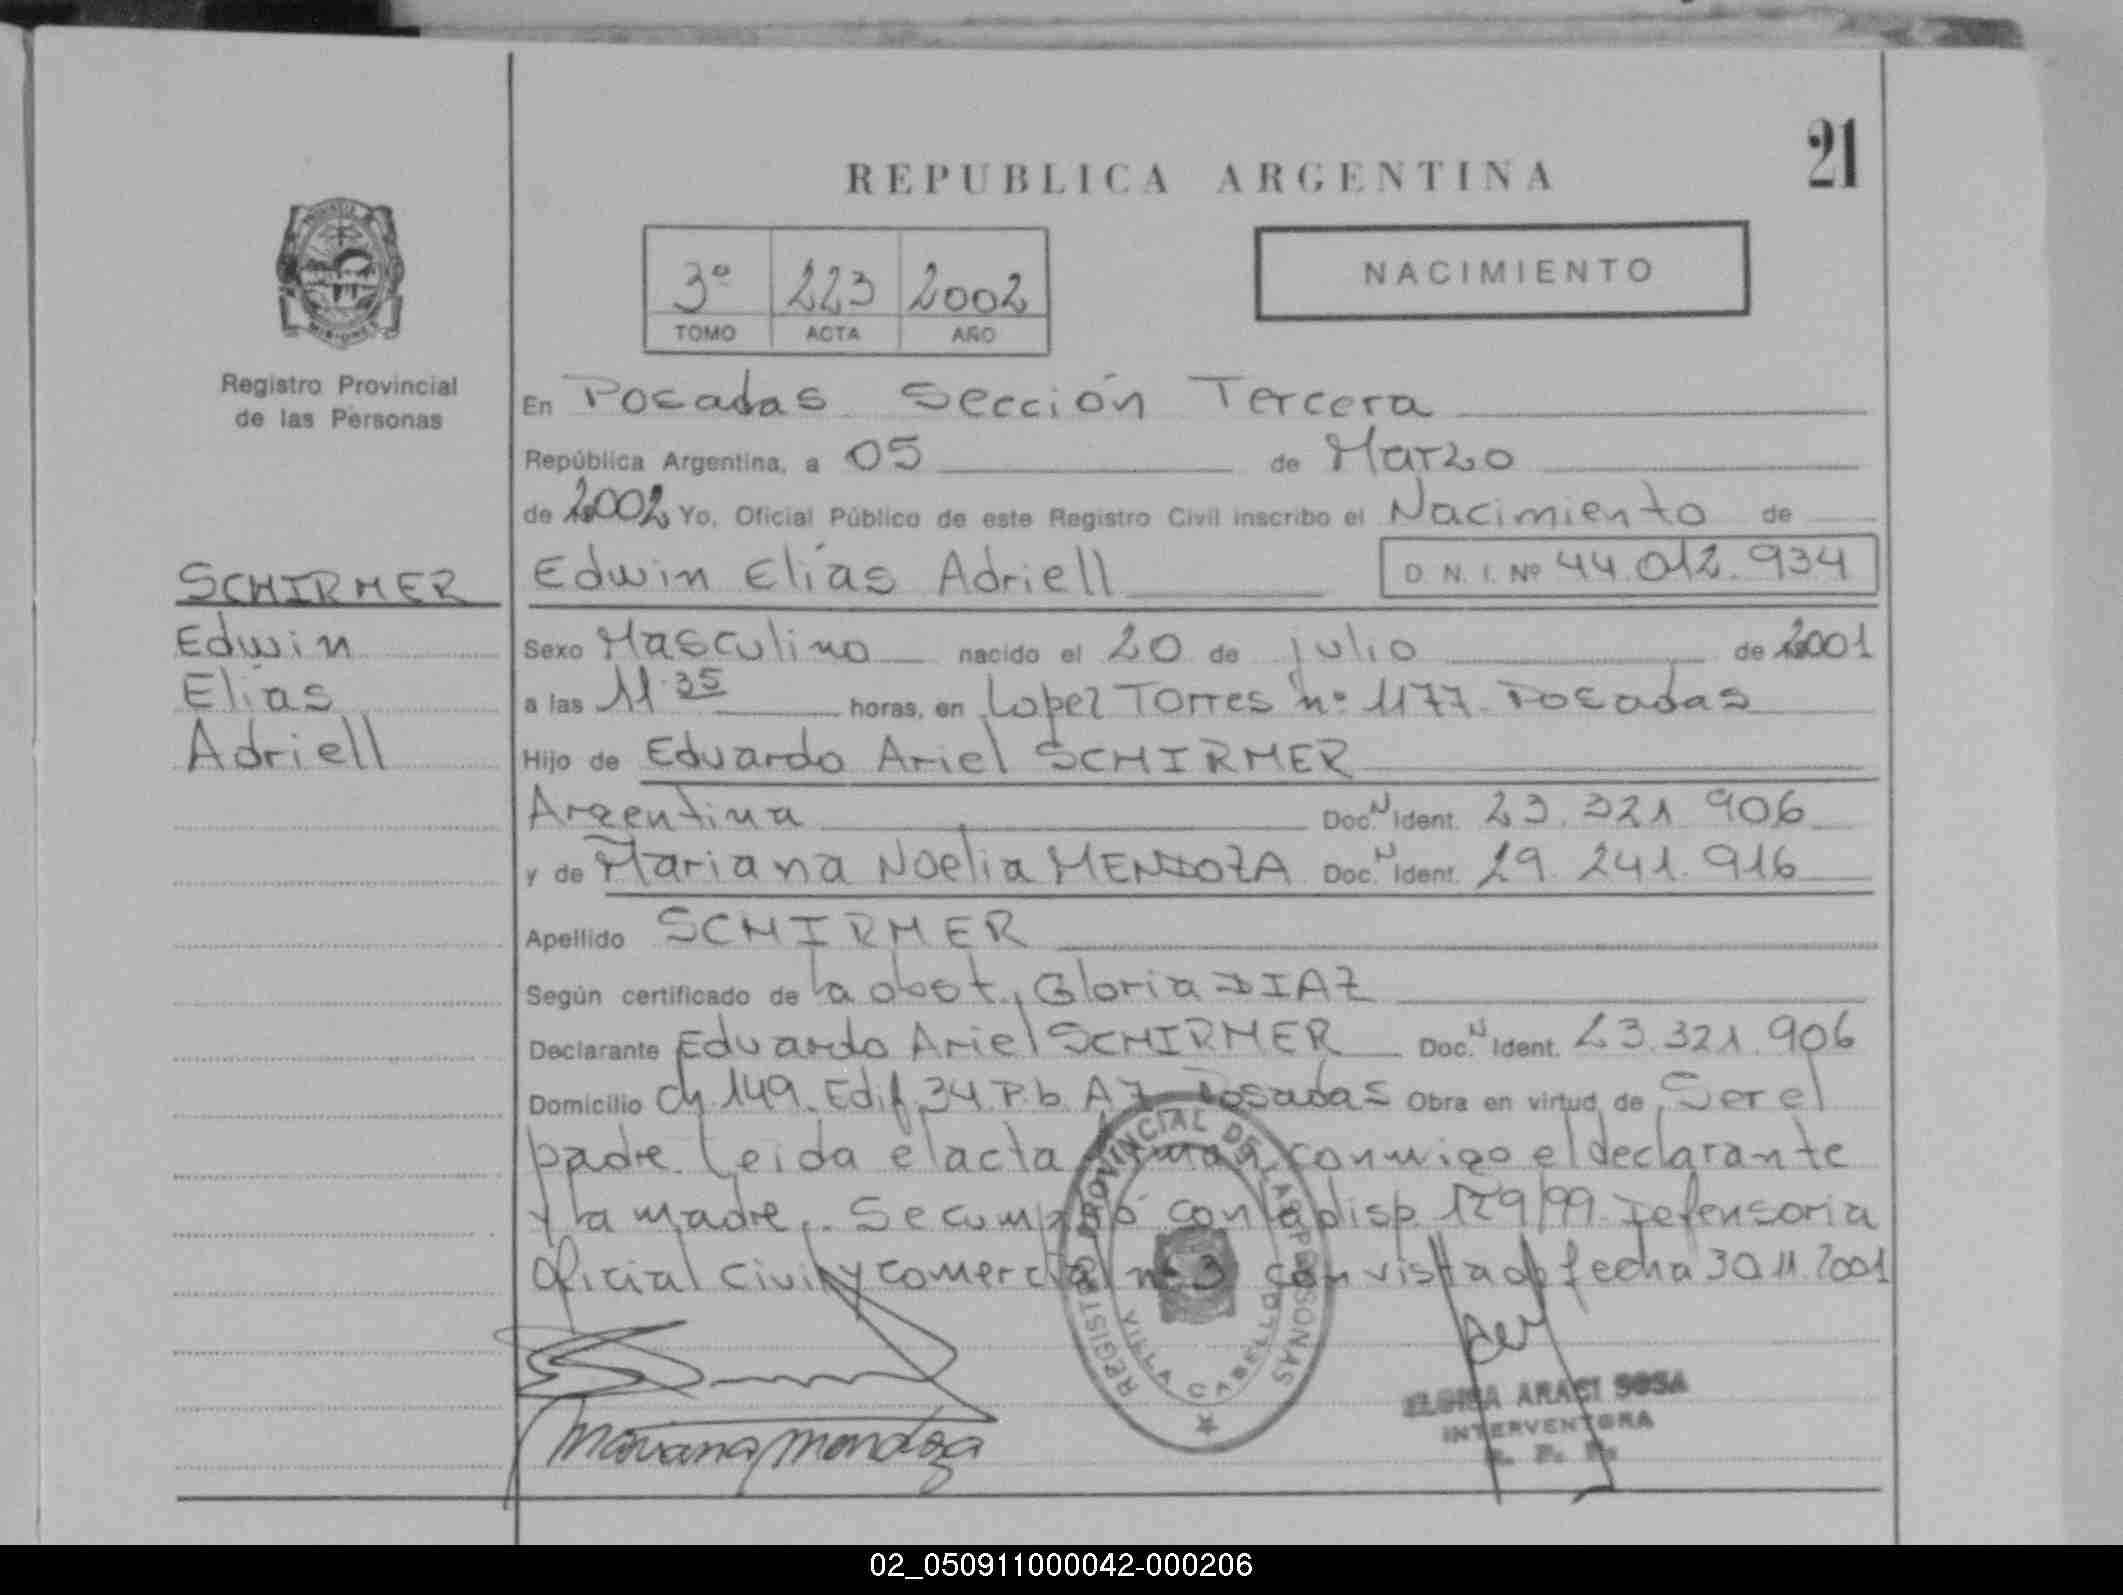 21
REPUBLICA ARGENTINA
3º 223 2002
TOMO ACTA AÑO
NACIMIENTO
PROVINCIA
MISIONES
Registro Provincial
de las Personas
SCHIRMER
Edwin
Elías
Adriell
En Posadas Sección Tercera
República Argentina, a 05 de Marzo
de 2002 Yo, Oficial Público de este Registro Civil inscribo el Nacimiento de
Edwin Elías Adriell D. N. I. Nº 44.012.934
Sexo Masculino nacido el 20 de julio de 2001
a las 11 35 horas, en Lopez Torres nº 1177 Posadas
Hijo de Eduardo Ariel SCHIRMER
Argentina Doc. N Ident. 23.321.906
y de Mariana Noelia MENDOZA Doc. N Ident. 29.241.916
Apellido SCHIRMER
Según certificado de la obst. Gloria DIAZ
Declarante Eduardo Ariel SCHIRMER Doc. N Ident. 23.321.906
Domicilio Ch 149 Edif 34 P.b. A 7 Posadas Obra en virtud de Ser el
padre. Leida el acta firman conmigo el declarante
y la madre. Se cumplió con la disp. 129/99 Defensoria
Oficial Civil y Comercial nº 3 con vista de fecha 30.11.2001
REGISTRO PROVINCIAL DE LAS PERSONAS
VILLA CABELLO
Mariana Mendoza
ELOISA ARACI SOSA
INTERVENTORA
R. P. P.
02_050911000042-000206